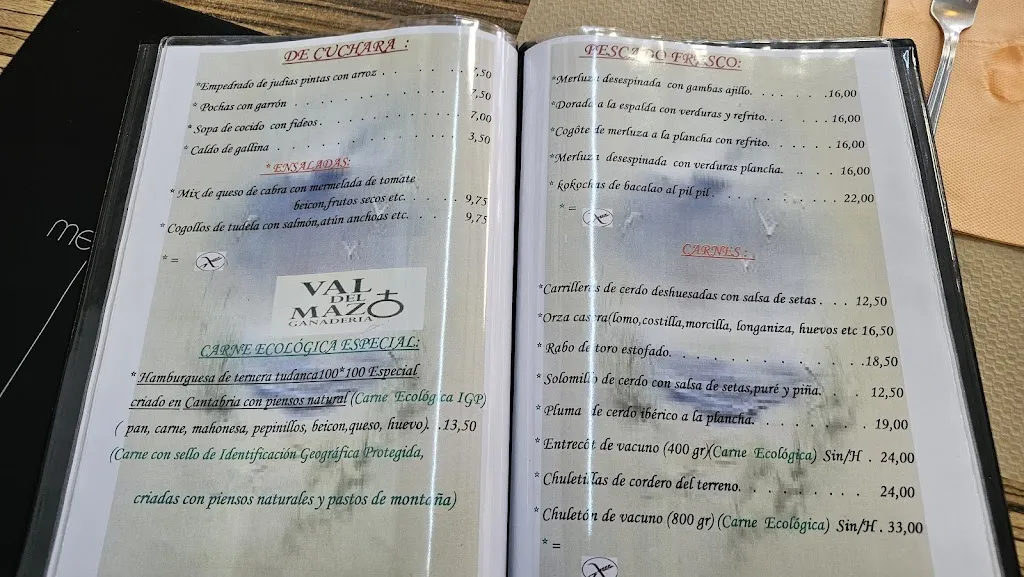 ME
DE CUCHARA :
*Empedrado de judias pintas con arroz . . . . . . . 7,50
* Pochas con garrón . . . . . . . . . . 7,50
* Sopa de cocido con fideos . . . . . . . . 7,00
* Caldo de gallina . . . . . . . . . . 3,50
* ENSALADAS:
* Mix de queso de cabra con mermelada de tomate
beicon,frutos secos etc. . . . . . 9,75
* Cogollos de tudela con salmón,atún anchoas etc. . . . . 9,75
* =
VAL
DEL
MAZO
GANADERIA
CARNE ECOLÓGICA ESPECIAL:
* Hamburguesa de ternera tudanca100*100 Especial
criado en Cantabria con piensos natural (Carne Ecológica IGP)
( pan, carne, mahonesa, pepinillos, beicon,queso, huevo). .13,50
(Carne con sello de Identificación Geográfica Protegida,
criadas con piensos naturales y pastos de montaña)
PESCADO FRESCO:
*Merluza desespinada con gambas ajillo. . . . . . . .16,00
*Dorada a la espalda con verduras y refrito. . . . . . 16,00
*Cogote de merluza a la plancha con refrito. . . . . . 16,00
*Merluza desespinada con verduras plancha. .. . . 16,00
* kokochas de bacalao al pil pil . . . . . . . . . 22,00
* =
CARNES :
*Carrilleras de cerdo deshuesadas con salsa de setas . . . 12,50
*Orza casera(lomo,costilla,morcilla, longaniza, huevos etc 16,50
* Rabo de toro estofado. . . . . . . . . . .18,50
* Solomillo de cerdo con salsa de setas,puré y piña. . . . 12,50
* Pluma de cerdo ibérico a la plancha. . . . . . . 19,00
* Entrecòt de vacuno (400 gr)(Carne Ecológica) Sin/H . 24,00
* Chuletillas de cordero del terreno. . . . . . . . 24,00
* Chuletón de vacuno (800 gr) (Carne Ecológica) Sin/H . 33,00
* =